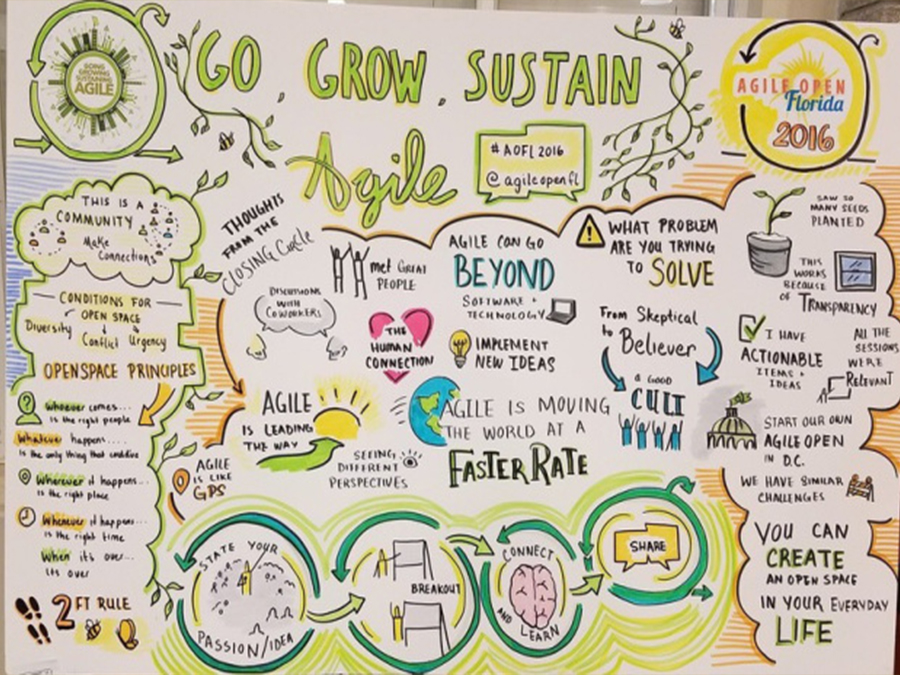 GOING
GROWING
SUSTAINING
AGILE
GO, GROW, SUSTAIN
Agile
#AOFL2016
@agileopenfl
AGILE OPEN
Florida
2016
THIS IS A
COMMUNITY
Make
Connections
CONDITIONS FOR
OPEN SPACE
Diversity
Conflict
Urgency
OPENSPACE PRINCIPLES
Whoever comes...
is the right people
Whatever happens...
is the only thing that could've
Wherever it happens...
is the right place
Whenever it happens...
is the right time
When it's over...
its over
2 FT RULE
THOUGHTS
FROM THE
CLOSING Circle
met GREAT
PEOPLE
DISCUSSIONS
WITH
COWORKERS
THE
HUMAN
CONNECTION
AGILE
IS LEADING
THE WAY
AGILE
IS LIKE
GPS
SEEING
DIFFERENT
PERSPECTIVES
AGILE CAN GO
BEYOND
SOFTWARE +
TECHNOLOGY
IMPLEMENT
NEW IDEAS
AGILE IS MOVING
THE WORLD AT A
FASTER RATE
WHAT PROBLEM
ARE YOU TRYING
TO SOLVE
From Skeptical
to Believer
A GOOD
CULT
SAW SO
MANY SEEDS
PLANTED
THIS
WORKS
BECAUSE
OF TRANSPARENCY
I HAVE
ACTIONABLE
ITEMS +
IDEAS
ALL THE
SESSIONS
WERE
Relevant
START OUR OWN
AGILE OPEN
IN D.C.
WE HAVE SIMILAR
CHALLENGES
YOU CAN
CREATE
AN OPEN SPACE
IN YOUR EVERYDAY
LIFE
STATE YOUR
PASSION/IDEA
BREAKOUT
CONNECT
AND
LEARN
SHARE